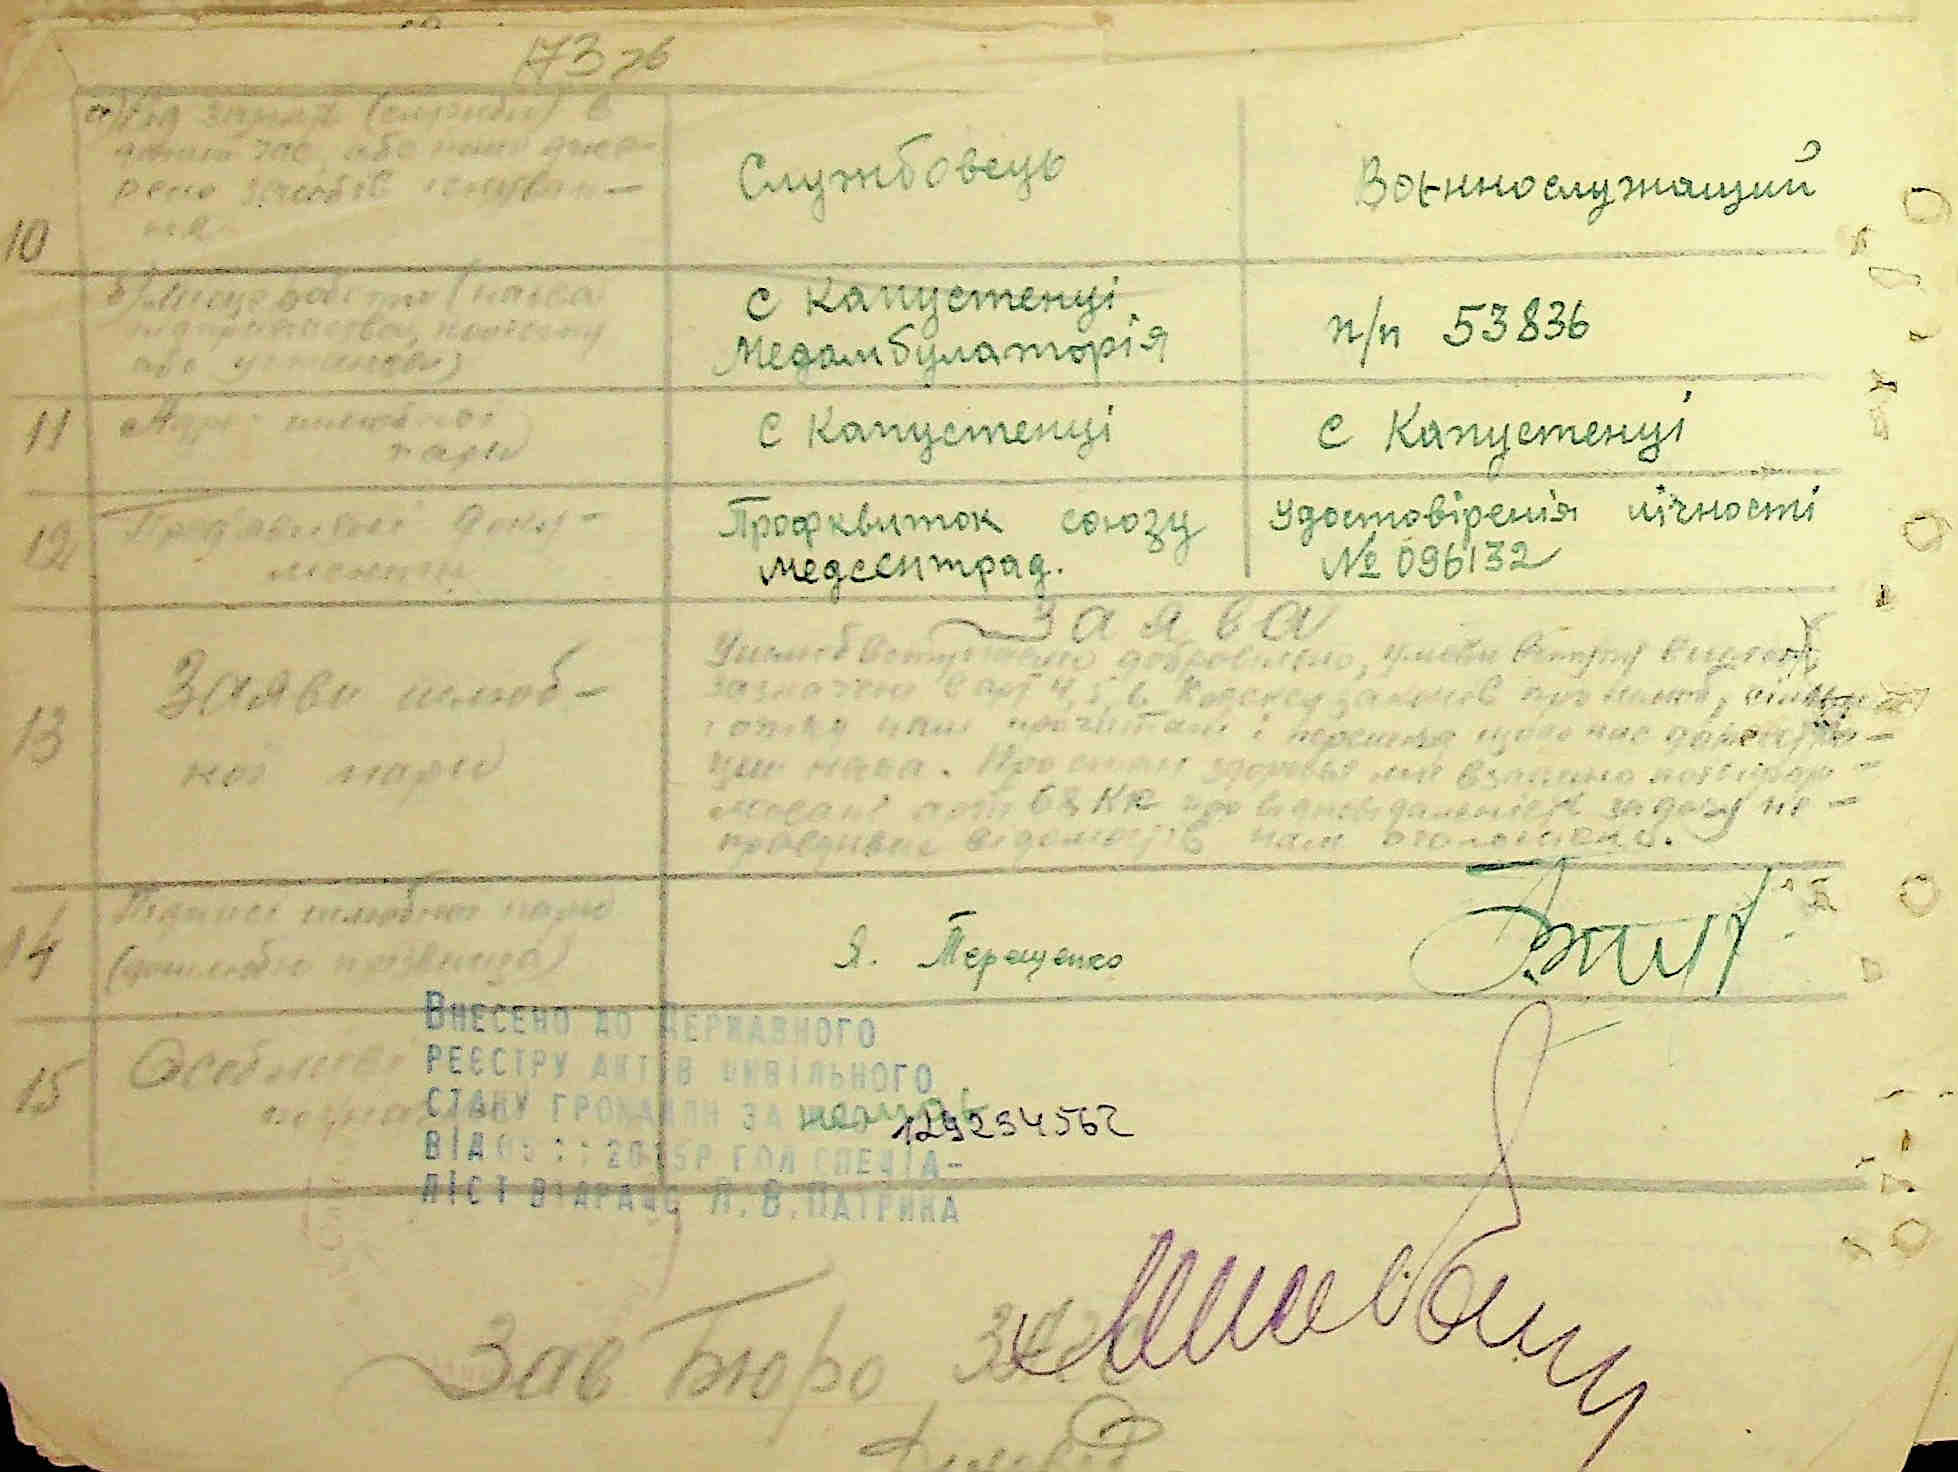 173 зв
а) Рід занять (служби) в
даний час, або інше джерело
рело засобів існуван-
ня
Службовець
Военнослужащий
10
б) Місце роботи (назва
підприємства,
або установи)
с Капустенці
Медамбулаторія
п/п 53836
11
Адреса шлюбної
пари
с Капустенці
с Капустенці
12
Пред'явлені доку-
менти
Профквиток союзу
медсентрад.
Удостовіренія лічності
№ 096132
13
Заяви шлюб-
ної пари
Заява
У шлюб вступаємо добровільно, умови вступу в шлюб,
зазначені в арт 4, 5, 6 Кодексу законів про шлюб, сім'ю
і опіку нам прочитані і перешкод щодо нас
нема. Про стан здоров'я ми взаємно поінфор-
мовані арт КК про відповідальність за дачу не-
правдивих відомостів нам оголошено.
14
Підписі шлюбної пари
(дошлюбні прізвища)
Я. Терещенко
15
Особливі
Внесено до Державного
реєстру актів цивільного
стану громадян за
немає
129234562
від 2015р гол специа-
ліст відрацс Л.В.Патрика
Зав Бюро Загс